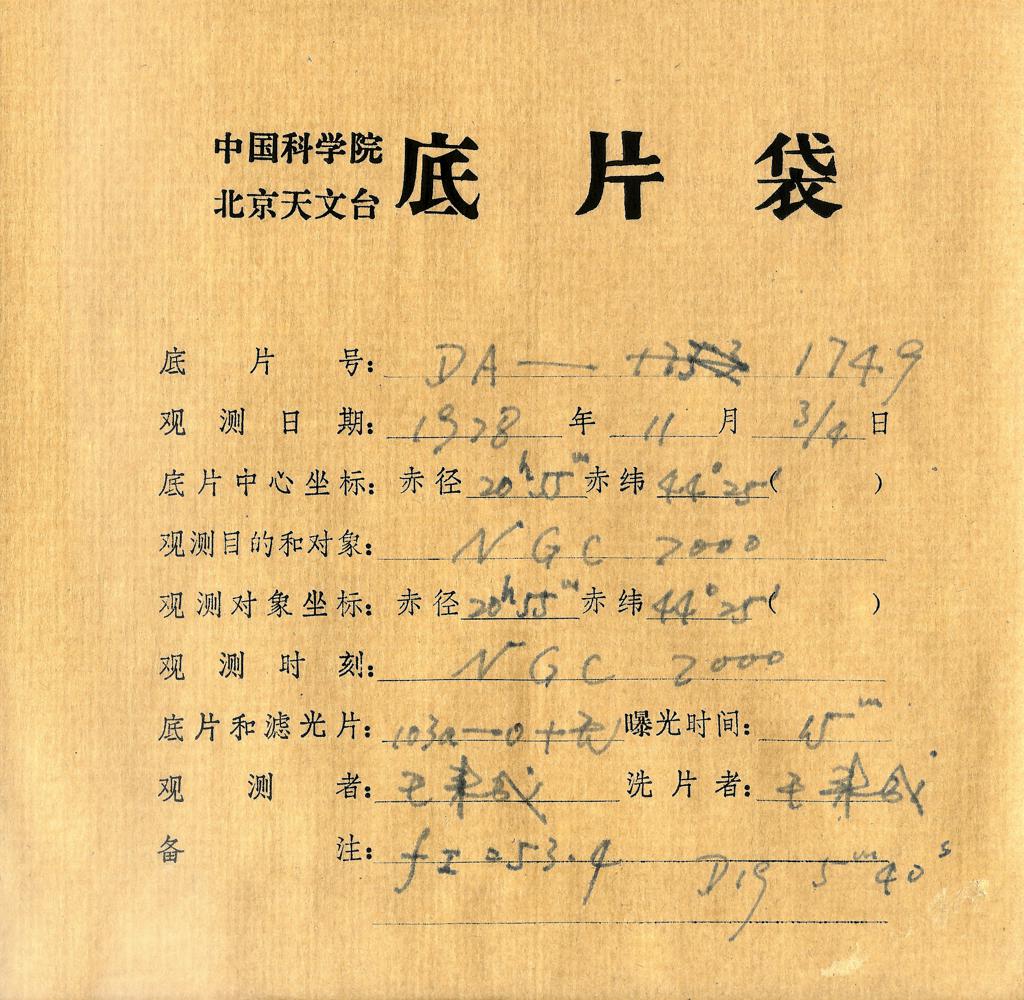 中国科学院
北京天文台
底片袋
底片号: DA— 1749
观测日期: 1978年 11月 3/4日
底片中心坐标: 赤径 20h55m 赤纬 44°25′( )
观测目的和对象: NGC 7000
观测对象坐标: 赤径 20h55m 赤纬 44°25′( )
观测时刻: NGC 7000
底片和滤光片: 103a—O+无 曝光时间: 15m
观测者: 曝光
洗片者:
备注: fz=53.4 D19 5m40s